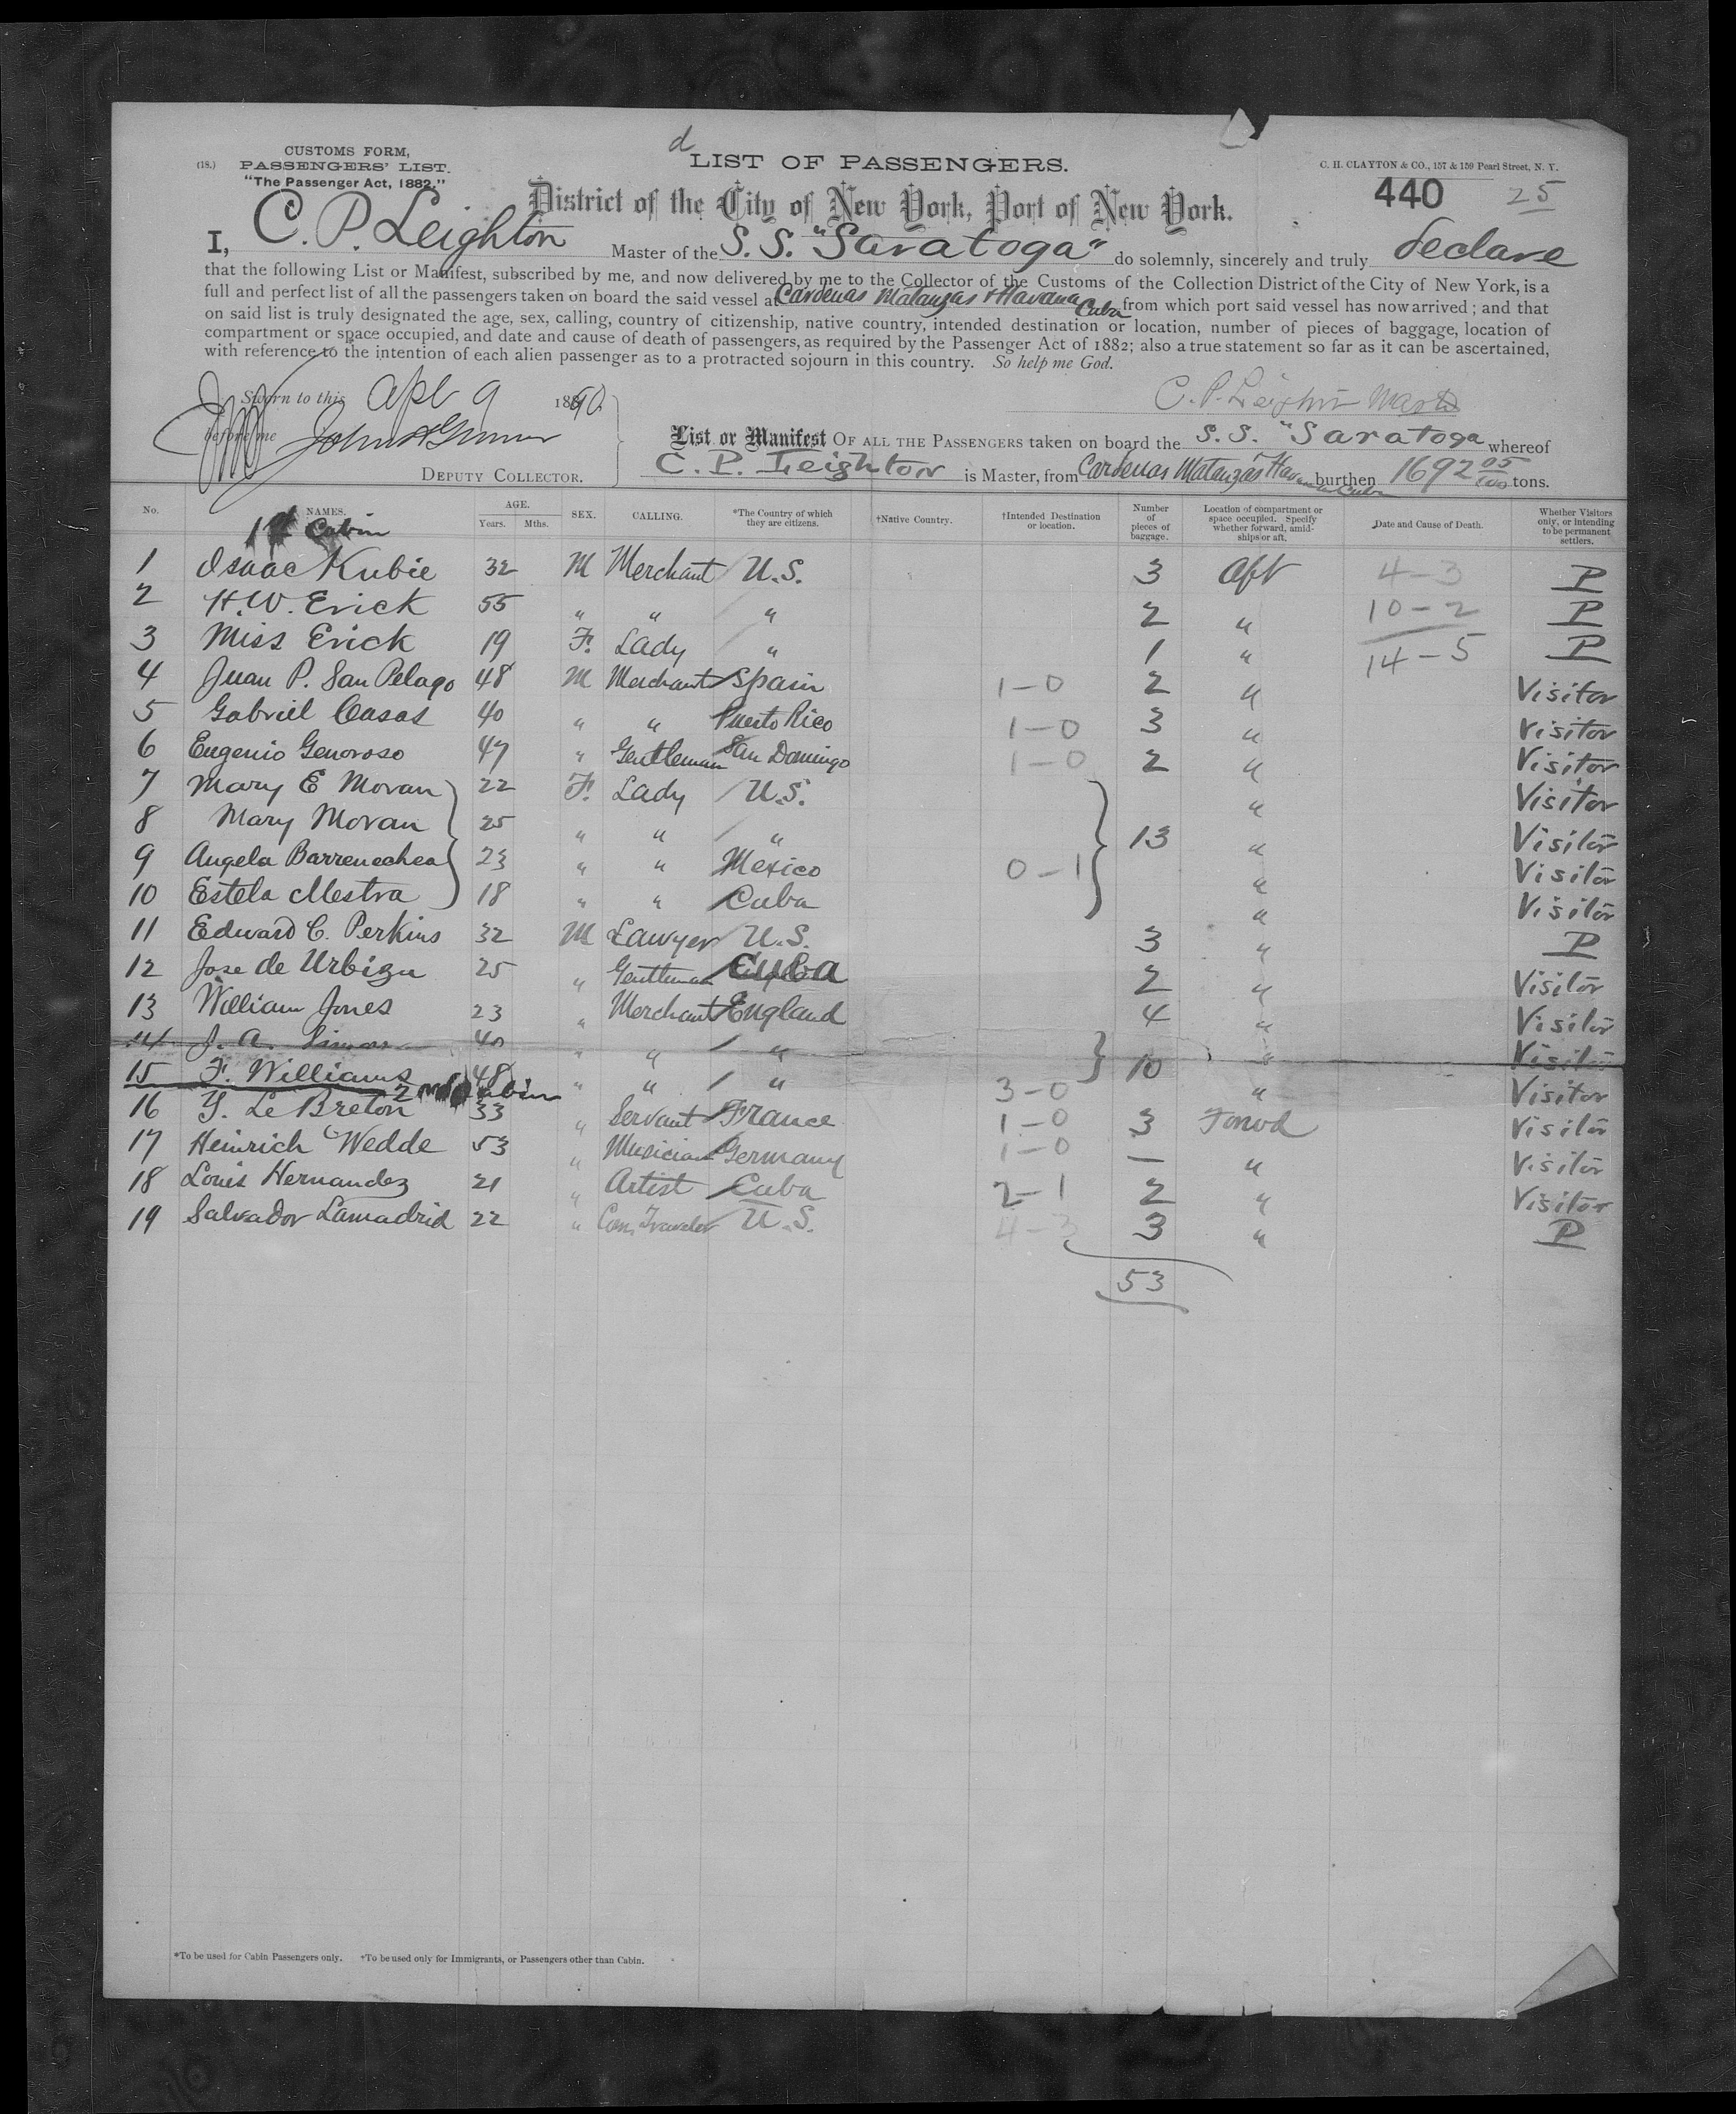 d
(18.)
CUSTOMS FORM,
PASSENGERS' LIST.
"The Passenger Act, 1882."
LIST OF PASSENGERS.
C. H. CLAYTON & CO., 157 & 159 Pearl Street, N. Y.
440 25
District of the City of New York, Port of New York.
I, C. P. Leighton Master of the S. S. "Saratoga" do solemnly, sincerely and truly declare
that the following List or Manifest, subscribed by me, and now delivered by me to the Collector of the Customs of the Collection District of the City of New York, is a
full and perfect list of all the passengers taken on board the said vessel at Cardenas Matanzas & Havana Cuba from which port said vessel has now arrived; and that
on said list is truly designated the age, sex, calling, country of citizenship, native country, intended destination or location, number of pieces of baggage, location of
compartment or space occupied, and date and cause of death of passengers, as required by the Passenger Act of 1882; also a true statement so far as it can be ascertained,
with reference to the intention of each alien passenger as to a protracted sojourn in this country. So help me God.
Sworn to this Apl 9 1890.
C. P. Leighton Master
before me
DEPUTY COLLECTOR.
List or Manifest OF ALL THE PASSENGERS taken on board the S. S. "Saratoga whereof
C. P. Leighton is Master, from Cardenas Matanzas Havana Cuba burthen 1692 05/100 tons.
No. NAMES. AGE. Years. Mths. SEX. CALLING. *The Country of which they are citizens. †Native Country. †Intended Destination or location. Number of pieces of baggage. Location of compartment or space occupied. Specify whether forward, amidships or aft. Date and Cause of Death. Whether Visitors only, or intending to be permanent settlers.
1st Cabin
1 Isaac Kubie 32 M Merchant U.S. 3 Aft 4-3 P
2 H. W. Erick 55 " " " 2 " 10-2 P
3 Miss Erick 19 F. Lady " 1 " 14-5 P
4 Juan P. San Pelago 48 M Merchant Spain 1-0 2 " Visitor
5 Gabriel Casas 40 " " Puerto Rico 1-0 3 " Visitor
6 Eugenio Genoroso 47 " Gentleman San Domingo 1-0 2 " Visitor
7 Mary E Moran 22 F. Lady U.S. " Visitor
8 Mary Moran 25 " " " 13 " Visitor
9 Angela Barrenechea 23 " " Mexico 0-1 " Visitor
10 Estela Mestra 18 " " Cuba " Visitor
11 Edward C. Perkins 32 M Lawyer U.S. 3 " P
12 Jose de Urbizu 25 " Gentleman Cuba 2 " Visitor
13 William Jones 23 " Merchant England 4 " Visitor
14 J. A. 40 " " " " Visitor
15 F. Williams 48 " " " 3-0 10 " Visitor
2nd Cabin
16 Y. Le Breton 33 " Servant France 1-0 3 Forwd Visitor
17 Heinrich Wedde 53 " Musician Germany 1-0 — " Visitor
18 Louis Hernandez 21 " Artist Cuba 2-1 2 " Visitor
19 Salvador Lamadrid 22 " Com. Traveler U.S. 4-3 3 " P
53
*To be used for Cabin Passengers only. †To be used only for Immigrants, or Passengers other than Cabin.